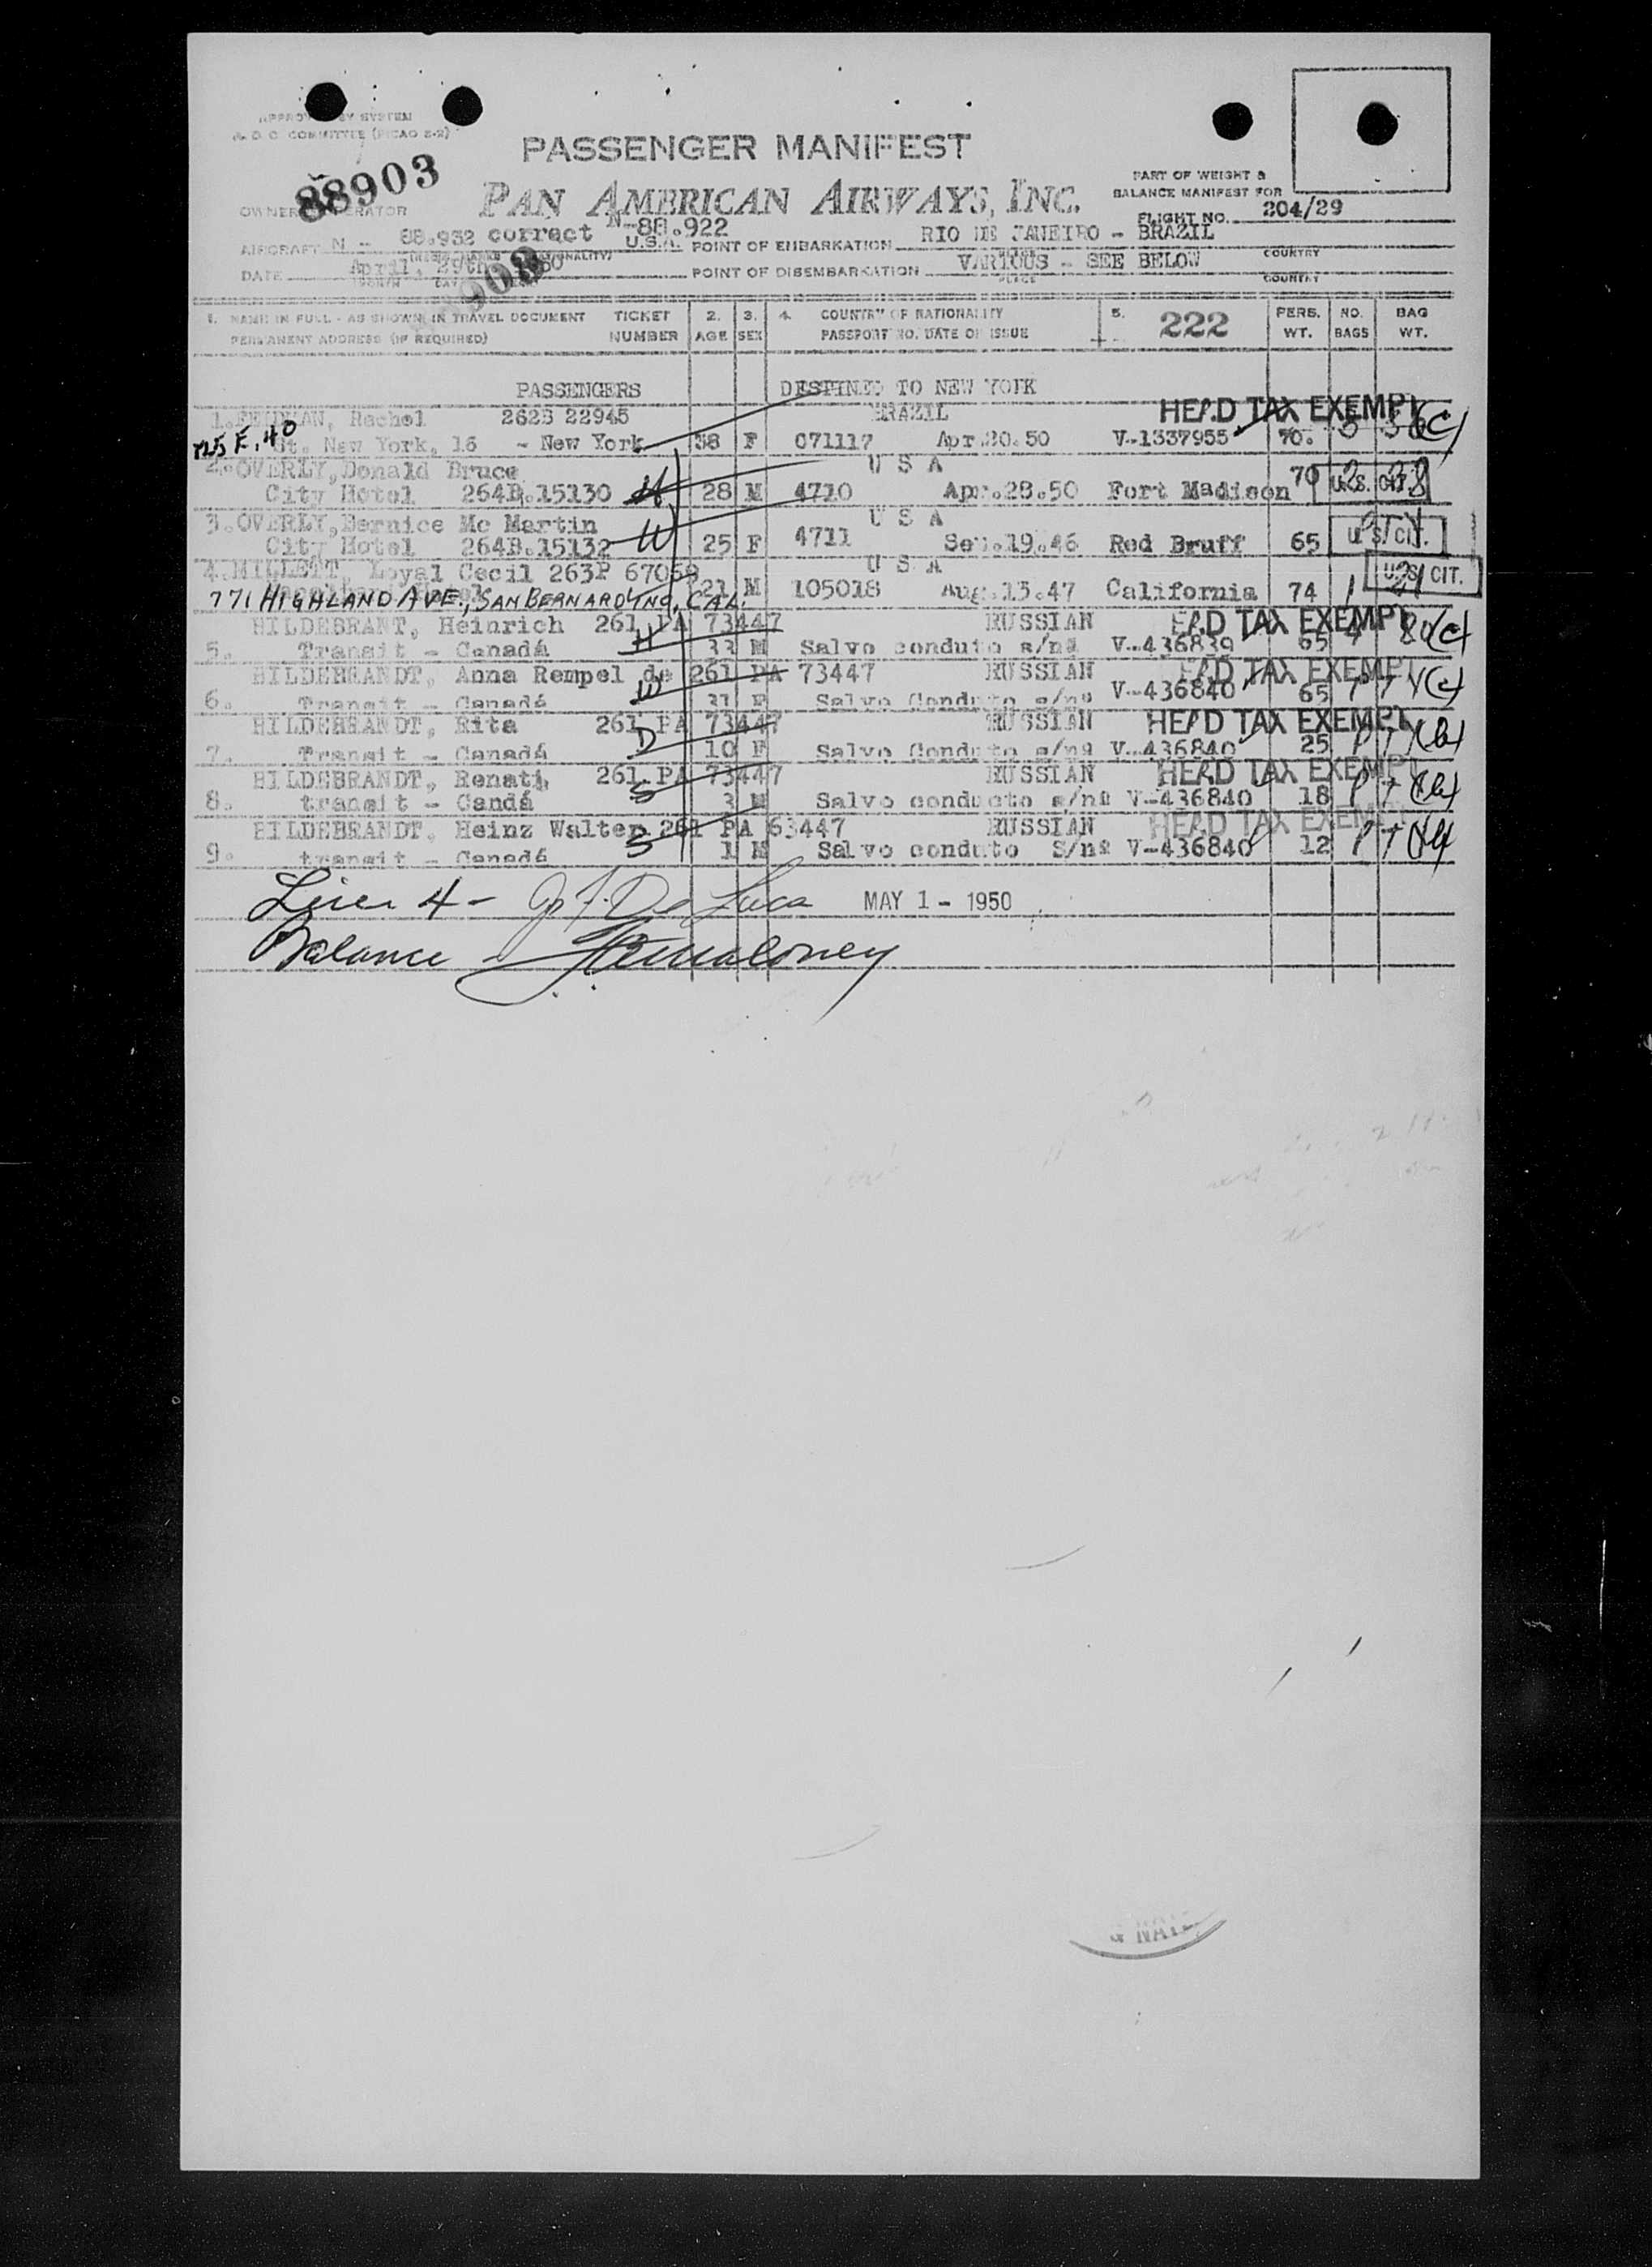 & D C COMMITTEE (PICAO 2-2)
PASSENGER MANIFEST
88903
PAN AMERICAN AIRWAYS, INC.
PART OF WEIGHT &
BALANCE MANIFEST FOR
OWNER OPERATOR
FLIGHT NO. 204/29
AIRCRAFT N - 88.932 correct N-88.922 U.S.A. POINT OF EMBARKATION RIO DE JANEIRO - BRAZIL
DATE April, 29th POINT OF DISEMBARKATION VARIOUS - SEE BELOW
PLACE COUNTRY
1. NAME IN FULL - AS SHOWN IN TRAVEL DOCUMENT TICKET 2. 3. 4. COUNTRY OF NATIONALITY 5. 222 PERS. NO. BAG
PERMANENT ADDRESS (IF REQUIRED) NUMBER AGE SEX PASSPORT NO. DATE OF ISSUE WT. BAGS WT.
PASSENGERS DESTINED TO NEW YORK
Rachel 262B 22945 BRAZIL HEAD TAX EXEMPT
725 E. 40 St. New York, 16 - New York 38 F 071117 Apr.20.50 V-1337955 70.
2. OVERLY, Donald Bruce U S A
City Hotel 264B.15130 28 M 4710 Apr.28.50 Fort Madison 70 U.S. CIT.
3. OVERLY, Bernice Mc Martin U S A
City Hotel 264B.15132 W 25 F 4711 Sep.19.46 Red Bruff 65 U S CIT.
4. MILLETT, Loyal Cecil 263P U S A U S CIT.
771 HIGHLAND AVE., SAN BERNARDINO, CAL. 21 M 105018 Aug.13.47 California 74 1
HILDEBRANT, Heinrich 261 PA 73447 RUSSIAN HEAD TAX EXEMPT
5. Transit - Canadá H 33 M Salvo conduto s/nº V-436839 65
HILDEBRANDT, Anna Rempel de 261 PA 73447 RUSSIAN HEAD TAX EXEMPT
6. Transit - Canadá W 31 F Salvo Conduto s/nº V-436840 65
HILDEBRANDT, Rita 261 PA 73447 RUSSIAN HEAD TAX EXEMPT
7. Transit - Canadá D 10 F Salvo Conduto s/nº V-436840 25
HILDEBRANDT, 261 PA 73447 RUSSIAN HEAD TAX EXEMPT
8. transit - Candá S 3 M Salvo conducto s/nº V-436840 18
HILDEBRANDT, Heinz Walter 261 PA 63447 RUSSIAN HEAD TAX EXEMPT
9. transit - Canadá S 1 M Salvo conduto S/nº V-436840 12
4 - De Luca MAY 1 - 1950
Balance - Maloney